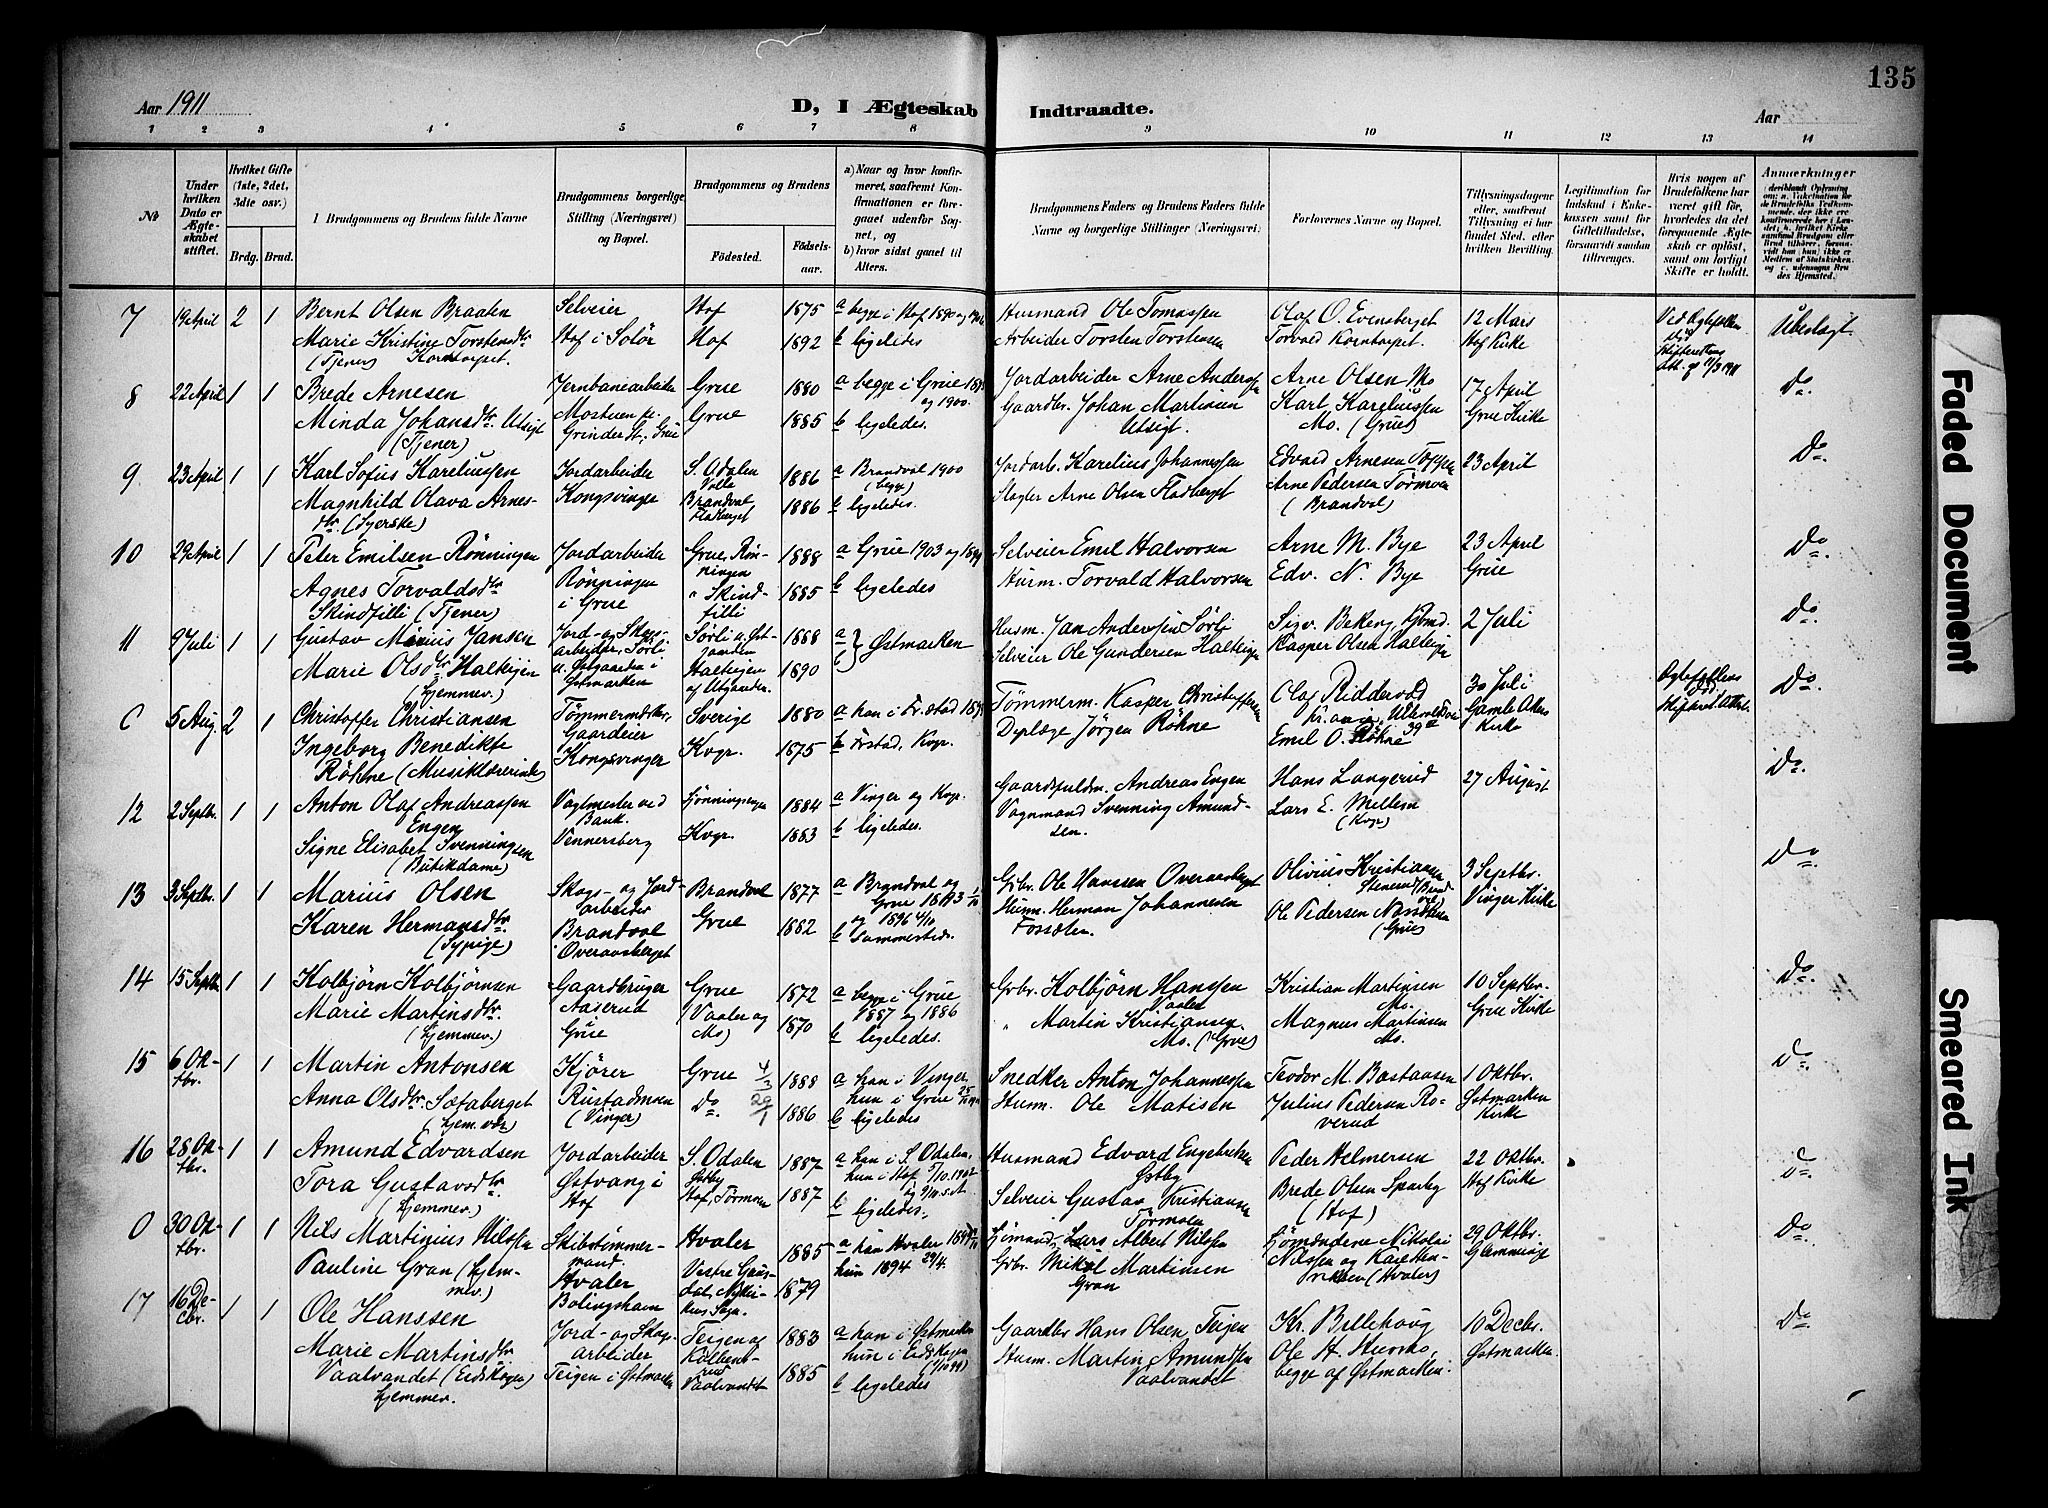 135
Aar 1911
D, I Ægteskab Indtraadte.
Aar
1 2 3 4 5 6 7 8 9 10 11 12 13 14
No
Under hvilken Dato er Ægteskabet stiftet.
Hvilket Gifte (1ste, 2det, 3die osv.)
Brdg. Brud.
Brudgommens og Brudens fulde Navne
Brudgommens borgerlige Stilling (Næringsvei) og Bopæl.
Brudgommens og Brudens
Födested. Födselsaar.
a) Naar og hvor konfirmeret, saafremt Konfirmationen er foregaaet udenfor Sognet, og
b) hvor sidst gaaet til Alters.
Brudgommens Faders og Brudens Faders fulde Navne og borgerlige Stillinger (Næringsvei)
Forlovernes Navne og Bopæl.
Tillysningsdagene eller, saafremt Tillysning ei har fundet Sted, efter hvilken Bevilling.
Legitimation for Indskud i Enkekassen samt for Giftetilladelse, forsaavidt saadan tiltrænges.
Hvis nogen af Brudefolkene har været gift før, hvorledes da det foregaaende Ægteskab er opløst, samt om lovligt Skifte er holdt.
Anmerkninger
7 19 April 2 1 Bernt Olsen Braaten Selveier Hof 1875 a begge i Hof 1890 og Husmand Ole Tomassen Olaf O. Evensberget 12 Mars Ubeslægt.
Marie Kristine Torstensdtr. Hof i Solör Hof 1892 b ligeledes Arbeider Torsten Torstensen Torvald Korntorpet. Hof Kirke
(Tjener) Korntorpet.
8 22 April 1 1 Brede Arnesen Jernbanearbeider Grue 1880 a begge i Grue og 1900. Jordarbeider Arne Anderssen Arne Olsen Mo 17 April Do.
Minda Johansdtr. Utsigt Mostuen pr. Grue 1885 b ligeledes. Gaardbr. Johan Martinsen Karl Kareliussen Grue Kirke
(Tjener) Grinder St., Grue Utsigt Mo. (Grue)
9 23 April 1 1 Karl Sofus Kareliussen Jordarbeider S. Odalen 1886 a Brandval 1900 (begge) Jordarb. Karelius Johannessen Edvard Arnesen 23 April Do.
Magnhild Olava Arnesdtr. (Syerske) Kongsvinger Brandval Fladberget 1886 b ligeledes. Slagter Arne Olsen Fladberget Arne Pedersen Törmoen (Brandval)
10 29 April 1 1 Peter Emilsen Rönningen Jordarbeider Grue, Rönningen 1888 a Grue 1903 og 1899 Selveier Emil Halvorsen Arne M. Bye 23 April Do.
Agnes Torvaldsdtr. Rönningen " Skindfilli 1885 b ligeledes Husm. Torvald Halvorsen Edv. N. Bye Grue
Skindfilli (Tjener) i Grue
11 9 Juli 1 1 Gustav Marius Jansen Jord- og Skogsarbeider, Sörli Sörli u. Østgaarden 1888 a } Østmarken Husm. Jan Anderssen Sörli Sigv. Bekeng, Kbmd. 2 Juli Do.
Marie Olsdtr. Halteigen u. Østgaarden i Halteigen 1890 b Selveier Ole Gundersen Halteigen Kasper Olsen Halteigen
(hjemmev.) Østmarken af Utgaarden.
C 5 Aug. 2 1 Christoffer Christiansen Tömmermester, Sverige 1880 a han i Frstad Tömmerm. Kasper Christoffersen Olaf Riddervold 30 Juli Do.
Ingeborg Benedikte Gaardeier Kvgr. 1875 b Frstad, Kvgr. Jörgen Röhne Gamle Akers Kirke
Röhne (Musiklærerinde) Kongsvinger Emil O. Röhne
12 2 Septbr. 1 1 Anton Olaf Andreassen Vagtmester ved 1884 a Vinger og Kvgr. Gaardsfuldm. Andreas Engen Hans Langerud 27 August Do.
Engen Bank. Kvgr. 1883 b ligeledes. Vognmand Svenning Amundsen. Lars E. Mellem (Kvgr)
Signe Elisabet Svenningsen Vennersberg
(Butikdame)
13 3 Septbr. 1 1 Marius Olsen Skogs- og Jordarbeider Brandval 1877 a Brandval og Grue 1893 Gbr. Ole Hanssen Overaasberget Olivius Kristiansen 3 Septbr. Do.
Karen Hermansdtr. Brandval Grue 1882 og 1896 4/10 Husm. Herman Johannesen Ole Pedersen Vinger Kirke
(Sypige) Overaasberget b Sammesteds. Fossdalen. (Grue)
14 15 Septbr. 1 1 Kolbjörn Kolbjörnsen Gaardbruger Grue 1872 a begge i Grue Gbr. Kolbjörn Hanssen Kristian Martinsen 10 Septbr. Do.
Marie Martinsdtr. Aaserud (Vaaler og 1870 1887 og 1886 Vaaler Mo. Grue Kirke
(hjemmev.) Grue Mo) b ligeledes. " Martin Kristiansen Mo. (Grue) Magnus Martinsen Mo.
15 6 Oktbr. 1 1 Martin Antonsen Kjörer Grue 4/3 1888 a han i Vinger Snedker Anton Johannessen Teodor M. Bastiansen 1 Oktbr. Do.
Anna Olsdtr. Sætaberget Rustadmoen Do. 29/1 1886 hun i Grue Husm. Ole Matisen Julius Pedersen Roverud Østmarken Kirke
(hjem. vær.) (Vinger) b ligeledes
16 28 Oktbr. 1 1 Amund Edvardsen Jordarbeider S. Odalen 1887 a han i S. Odalen, Husmand Edvard Engebretsen Peder Helmersen 22 Oktbr. Do.
Tora Gustavsdtr. Østvang i Østby hun i Hof 5/10.1902 Østby Brede Olsen Sparby Hof Kirke
(hjemmev.) Hof Hof, Törmoen 1887 b ligeledes. Selveier Gustav Kristiansen Törmoen (Hof)
0 30 Oktbr. 1 1 Nils Martinius Nilssen Skibstömmermand Hvaler 1885 a han Hvaler Sjömand Lars Albert Nilssen Sjömændene Nikolai 29 Oktbr. Do.
Pauline Gran (hjemmev.) Hvaler Vestre Gausdal, 1879 hun 1894 29/4. Gbr. Mikal Martinsen Gran Nilssen og Glemminge
Bolingshavn (Hvaler)
17 16 Decbr. 1 1 Ole Hanssen Jord- og Skogarbeider Teigen og 1883 a han i Østmarken Gaardbr Hans Olsen Teigen Kr. Billehaug 10 Decbr. Do.
Marie Martinsdtr. Teigen i Østmarken Vaalvandet 1885 hun i Eidskogen Husm. Martin Amundsen Ole H. Østmarken.
Vaalvandet (Eidskogen) b ligeledes Vaalvandet begge af Østmarken.
hjemmev.
Faded Document
Smeared Ink